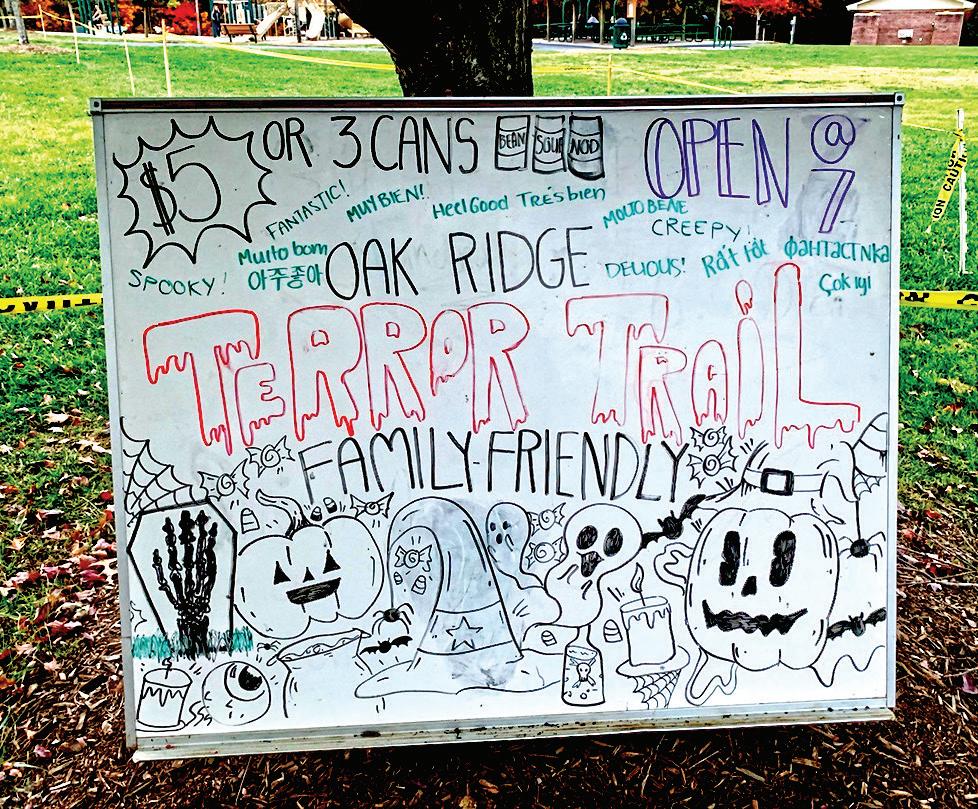 $5 OR 3 CANS BEAN SOUP NOD OPEN @ 7
FANTASTIC! MUY BIEN!! Heel Good Très bien MOLTO BENE
CREEPY!
SPOOKY! Muito bom
아주좋아 OAK RIDGE DELIOUS! Rất tốt фантастика
Çok iyi
TERROR TRAIL
FAMILY-FRIENDLY
CAUTION